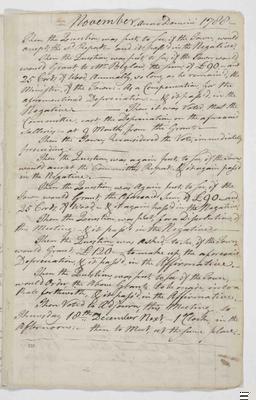 November, Anno Domini 1788 —
Then the Question was put, to see if the Town would
accept the sd Report and it pass'd in the Negative
Then the Question was put, to see if the Town would
would Grant to the Revd the Sum of £90 and
25 Cords of Wood Annually so long as he remains the
Minister of the Town. As a Compensation for the
aforementioned Depreciation & it pass'd in the
Negative. Then it was Voted, that the
Committee, cast the Depreciation on the aforesaid
Sallery at 9 Months from the Grant —
Then the Town Reconsidered the Vote, immediately
preceeding
Then the Question was again put, to see if the Town
would accept the Committees Report & it again pass'd
in the Negative
Then the Question was Again put to see if the
Town would Grant the aforesaid Sum of £90 and
25 Cords of Wood & it again pass'd in the Negative
Then the Question was put, for a Dissolution of
the Meeting & it pass'd in the Negative
Then the Question was Asked to see if the Town
would Grant £120 to make up the aforesaid
Depreciation, & it pass'd in the Affirmative
Then the Question was put to see if the Town
would Order the whole Grants to be made into a
Rate forthwith, & it pass'd in the Affirmative
Then Voted to Adjourn this Meeting, to
Thursday 18th December Next 1 Clock in the
Afternoon then to Meet at the same place.